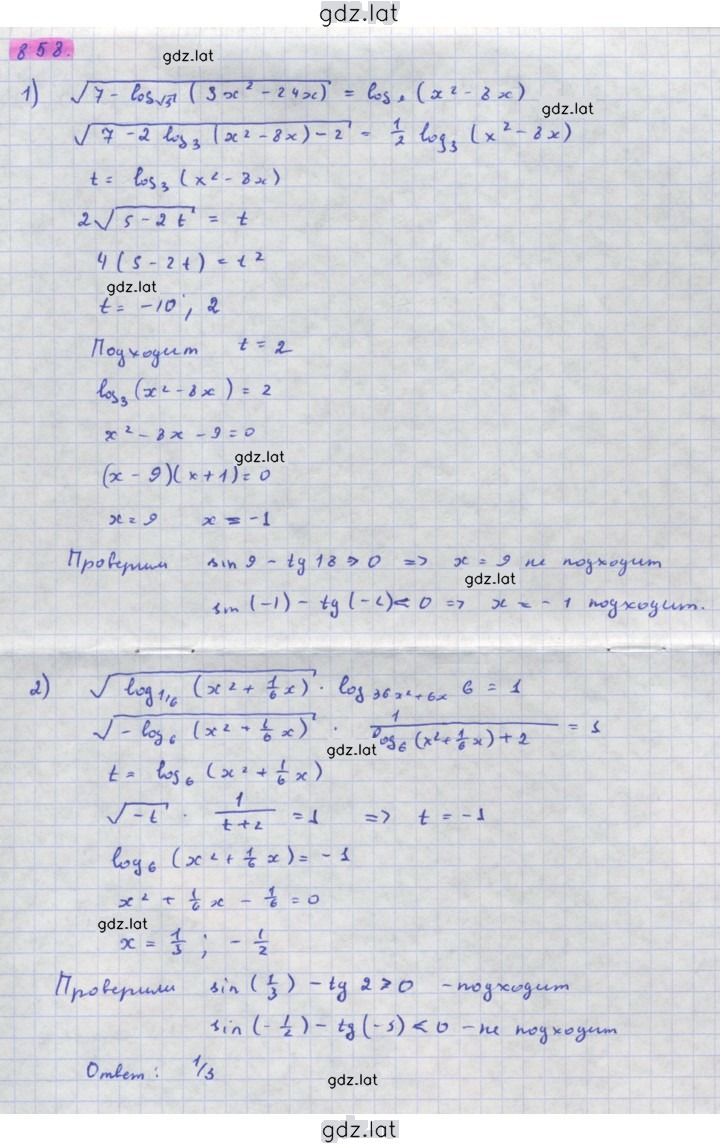 gdz.lat
858.
gdz.lat
1) √(7 - log_√3 (3x² - 24x)) = log₉ (x² - 8x)
gdz.lat
√(7 - 2 log₃ (x² - 8x) - 2) = 1/2 log₃ (x² - 8x)
t = log₃ (x² - 8x)
2√(5 - 2t) = t
4(5 - 2t) = t²
gdz.lat
t = -10; 2
Подходит t = 2
log₃ (x² - 8x) = 2
x² - 8x - 9 = 0
gdz.lat
(x - 9)(x + 1) = 0
x = 9 x = -1
Проверим sin 9 - tg 18 > 0 => x = 9 не подходит
gdz.lat
sin (-1) - tg (-2) < 0 => x = -1 подходит.
2) √(log_1/6 (x² + 1/6 x)) · log_36x²+6x 6 = 1
√(-log₆ (x² + 1/6 x)) · 1/(log₆ (x² + 1/6 x) + 2) = 1
gdz.lat
t = log₆ (x² + 1/6 x)
√(-t) · 1/(t+2) = 1 => t = -1
log₆ (x² + 1/6 x) = -1
x² + 1/6 x - 1/6 = 0
gdz.lat
x = 1/3 ; -1/2
Проверим sin (1/3) - tg 2 > 0 - подходит
sin (-1/2) - tg (-3) < 0 - не подходит
Ответ: 1/3
gdz.lat
gdz.lat